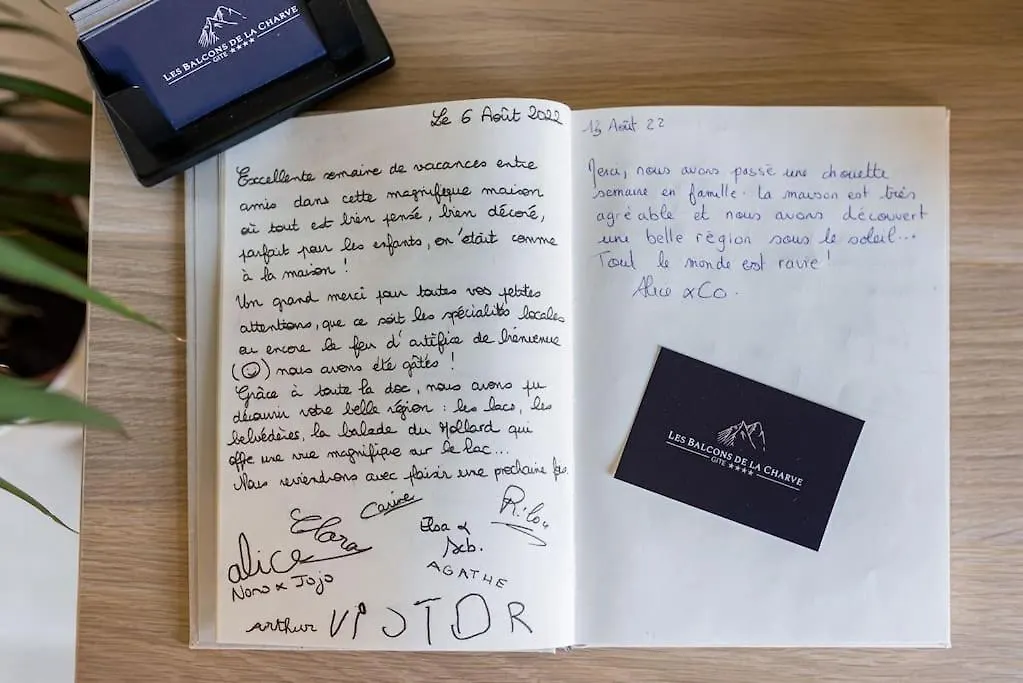 LES BALCONS DE LA CHARVE
GITE ★★★★
Le 6 Août 2022
Excellente semaine de vacances entre
amis dans cette magnifique maison
où tout est bien pensé, bien décoré,
parfait pour les enfants, on était comme
à la maison !
Un grand merci pour toutes vos petites
attentions, que ce soit les spécialités locales
ou encore le feu d'artifice de bienvenue
(☺) nous avons été gâtés !
Grâce à toute la doc, nous avons pu
découvrir votre belle région : les lacs, les
belvédères, la balade du Mollard qui
offre une vue magnifique sur le lac...
Nous reviendrons avec plaisir une prochaine fois.
Carine
Clara
Elsa &
Seb.
Rilou
alice
Nono & Jojo
AGATHE
arthur VICTOR
13 Août 22
Merci, nous avons passé une chouette
semaine en famille. La maison est très
agréable et nous avons découvert
une belle région sous le soleil...
Tout le monde est ravie !
Alice & Co.
LES BALCONS DE LA CHARVE
GITE ★★★★